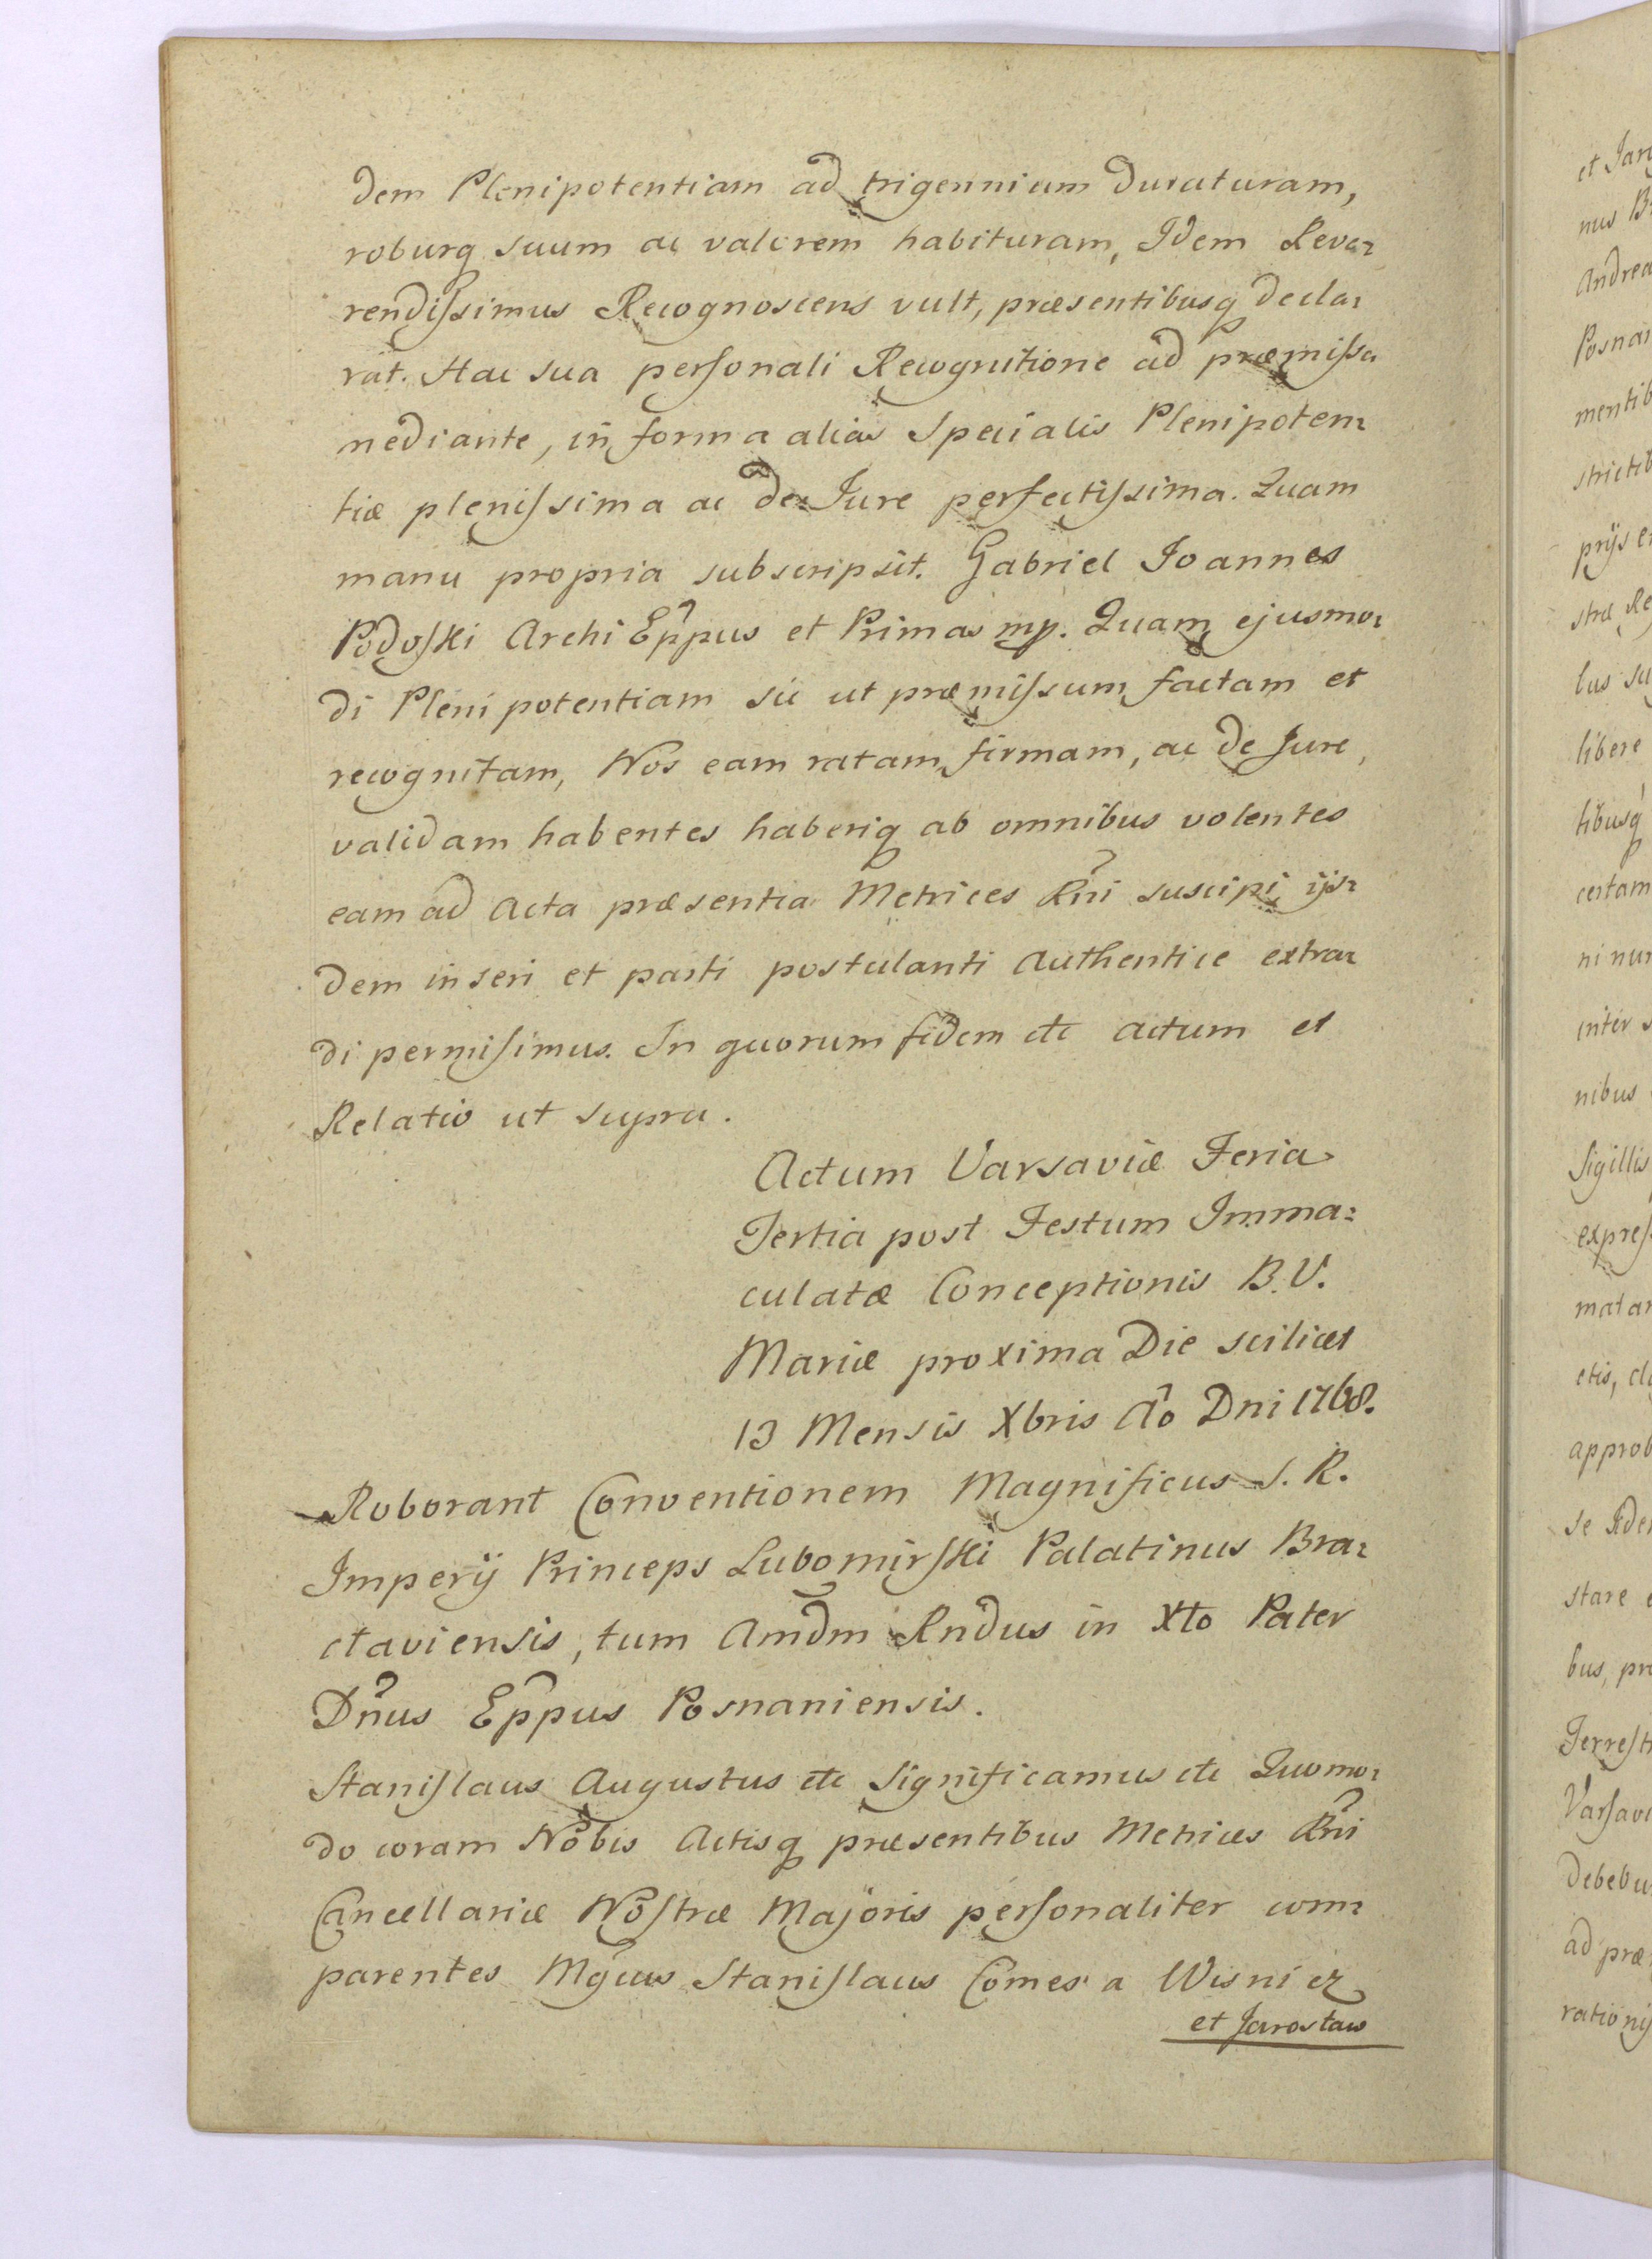 dem Plenipotentiam ad trigennium duraturam,
roburq suum ac valorem habituram, Idem Reve=
rendissimus Recognoscens vult, præsentibusq decla=
rat. Hac sua personali Recognitione ad præmissa
mediante, in forma alias Specialis Plenipoten=
tiæ plenissima ac de Jure perfectissima. Quam
manu propria subscripsit. Gabriel Joannes
Podoski Archi Eppus et Primas mp. Quam ejusmo=
di Plenipotentiam sic ut præmissum factam et
recognitam, Nos eam ratam, firmam, ac de Jure
validam habentes haberiq ab omnibus volentes
eam ad Acta præsentia Metrices Rni suscipi, ijs=
dem inseri et parti postulanti Authentice extra=
di permisimus. In quorum fidem etc Actum et
Relatio ut supra.
Actum Varsaviæ Feria
Tertia post Festum Imma=
culatæ Conceptionis B.V.
Mariæ proxima Die scilicet
13 Mensis Xbris Ao Dni 1768.
Roborant Conventionem Magnificus S. R.
Imperij Princeps Lubomirski Palatinus Bra=
claviensis, tum Amdm Rndus in Xto Pater
Dnus Eppus Posnaniensis.
Stanislaus Augustus etc Significamus etc Quomo=
do coram Nobis Actisq præsentibus Metrices Rni
Cancellariæ Nostræ Majoris personaliter com=
parentes Mgcus Stanislaus Comes a Wisnicz
et Jarosław
et Jar
nus B
Andrea
Posna
mentib
strictib
prijs e
stræ Re
lus su
libere
tibusq
certam
ni nu
inter s
nibus
Sigillis
expres
matar
etis, cl
approb
se Ede
stare e
bus, pr
Terrest
Varsavi
debebu
ad præ
rationi